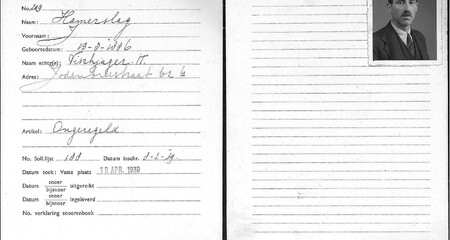 No: 249
Naam: Hamerslag
Voornaam: J
Geboortedatum: 19-8-1886
Naam echtg: Vischjager. K.
Adres: Jodenbreestraat 62
Artikel: Ongeregeld
No. Soll.lijst 188 Datum inschr.
Datum toek: Vaste plaats 19 APR. 1939
Datum snoer uitgereikt
bijsnoer
Datum snoer ingeleverd
bijsnoer
No. verklaring snoerenboek